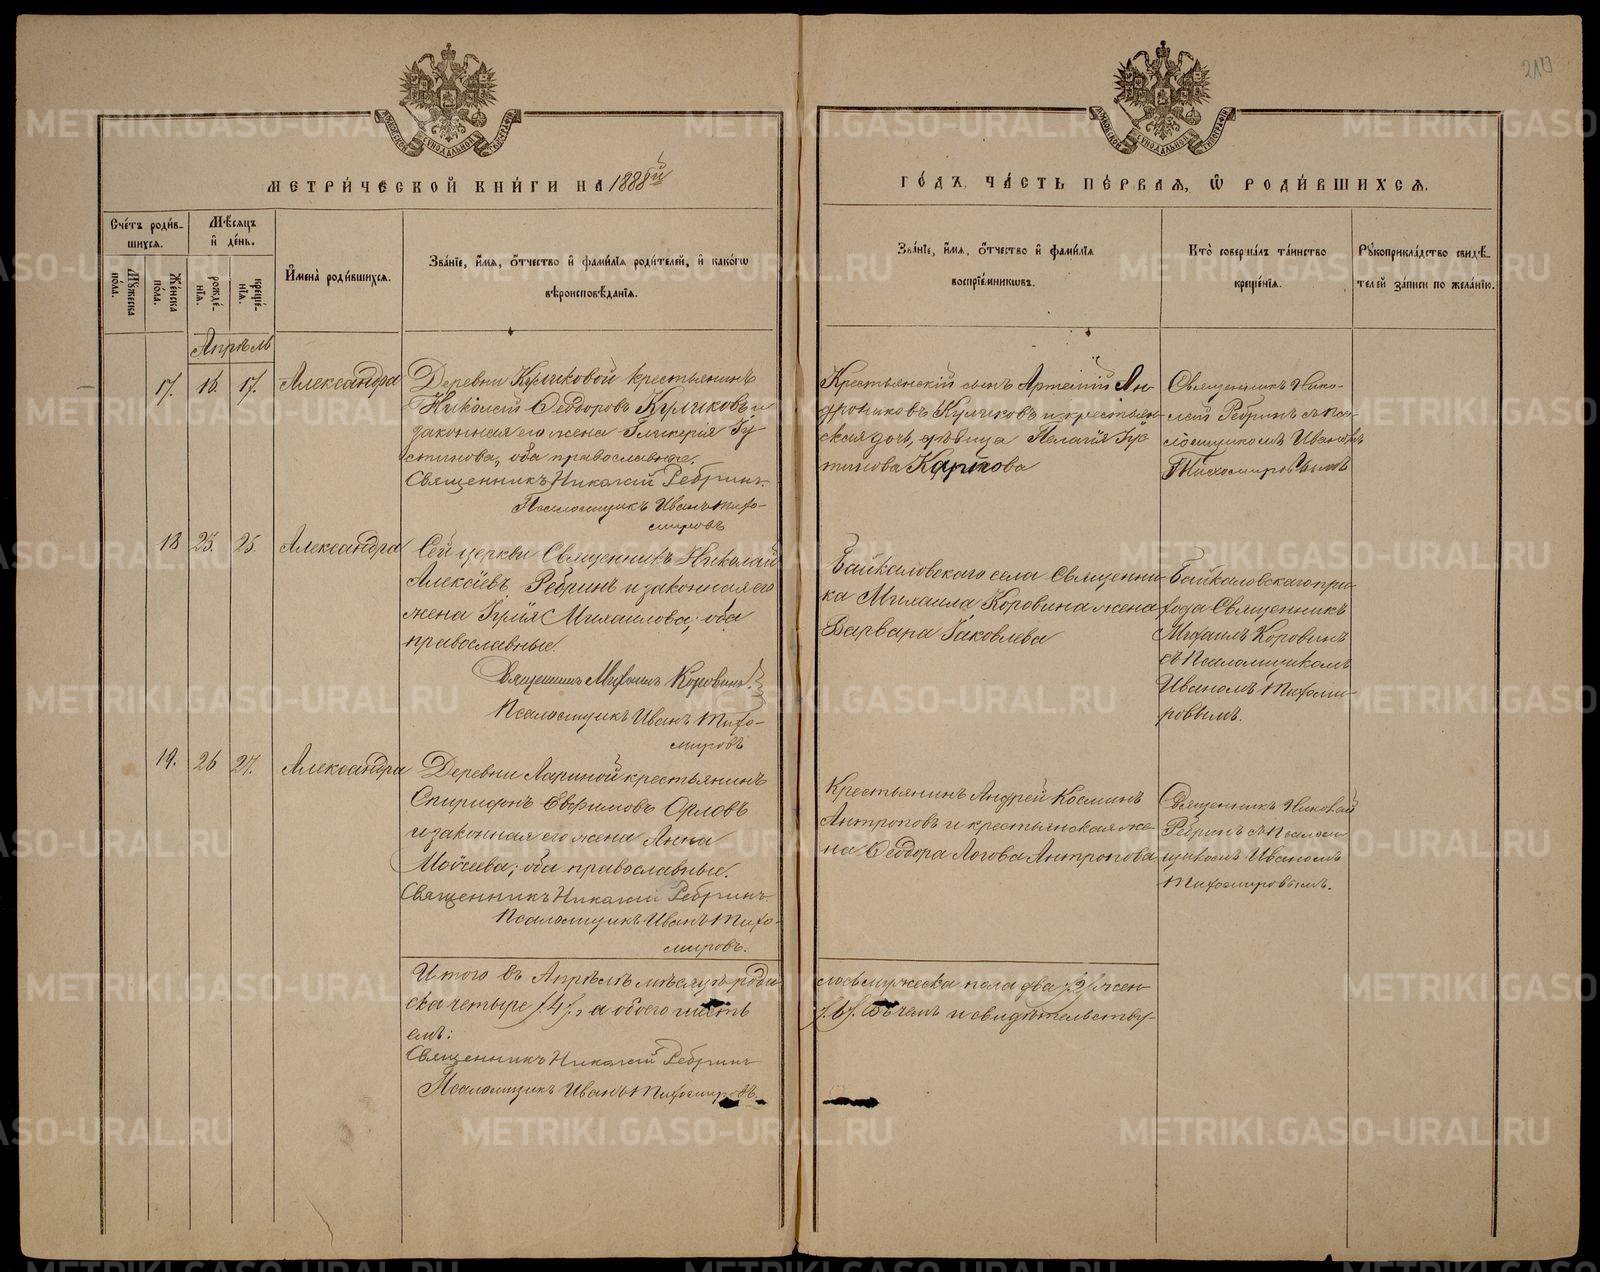 210
МЕТРИ́ЧЕСКОЙ КНИ́ГИ НА 1888й
ГО́ДЪ, ЧА́СТЬ ПЕ́РВАЯ, Ѡ РОДИ́ВШИХСЯ.
Сче́тъ роди́в-
шихся.
Му́жеска по́ла.
Же́нска по́ла.
Мѣ́сяцъ и де́нь.
рожде́-
нія.
креще́-
нія.
И́мена̀ роди́вшихся.
Зва́ніе, и́мя, о́тчество и фами́лія роди́телей, и како́гѡ
вѣроисповѣ́данія.
Зва́ніе, и́мя, о́тчество и фами́лія
воспріе́мникѡвъ.
Кто̀ соверша́лъ та́инство
креще́нія.
Рꙋкоприкла́дство свидѣ́-
телей за́писи по жела́нію.
Апрѣль
17. 16 17. Александра
Деревни Куликовой крестьянинъ
Николай Ѳеодоровъ Куликовъ и
законная его жена Гликерія Іу-
стинова, оба православные.
Священникъ Николай Ребринъ
Псаломщикъ Иванъ Тихо-
мировъ
Крестьянскій сынъ Артемій Ан-
дрониковъ Куликовъ и крестьян-
ская дочь, дѣвица Пелагія Іус
тинова
Священникъ Нико-
лай Ребринъ съ пса-
ломщикомъ Иваномъ
Тихомировымъ
18 25. 25. Александра
Сей церкви Священникъ Николай
Алексіевъ Ребринъ и законная его
жена Іулія Михаилова, оба
православные.
Священникъ Михаилъ Коровинъ.
Псаломщикъ Иванъ Тихо-
мировъ
Байкаловскаго села Священни-
ка Михаила Коровина жена
Варвара Іаковлева
Байкаловскаго при-
хода Священникъ
Михаилъ Коровинъ
съ Псаломщикомъ
Иваномъ Тихоми-
ровымъ.
19. 26 27. Александра
Деревни Лариной крестьянинъ
Спиридонъ Евфимовъ Орловъ
и законная его жена Анна
Моисеева; оба православные.
Священникъ Николай Ребринъ
Псаломщикъ Иванъ Тихо-
мировъ.
Крестьянинъ Андрей Косминъ
Антроповъ и крестьянская же-
на Ѳеодора Логова Антропова
Священникъ Николай
Ребринъ съ Псалом-
щикомъ Иваномъ
Тихомировымъ.
Итого въ Апрѣлѣ мѣсяцѣ роди-
лось мужеска пола два /2/ жен
ска четыре /4/, а обоего шесть
/6/. Въ чемъ и свидѣтельству-
емъ:
Священникъ Николай Ребринъ
Псаломщикъ Иванъ Тихомировъ.
METRIKI.GASO-URAL.RU